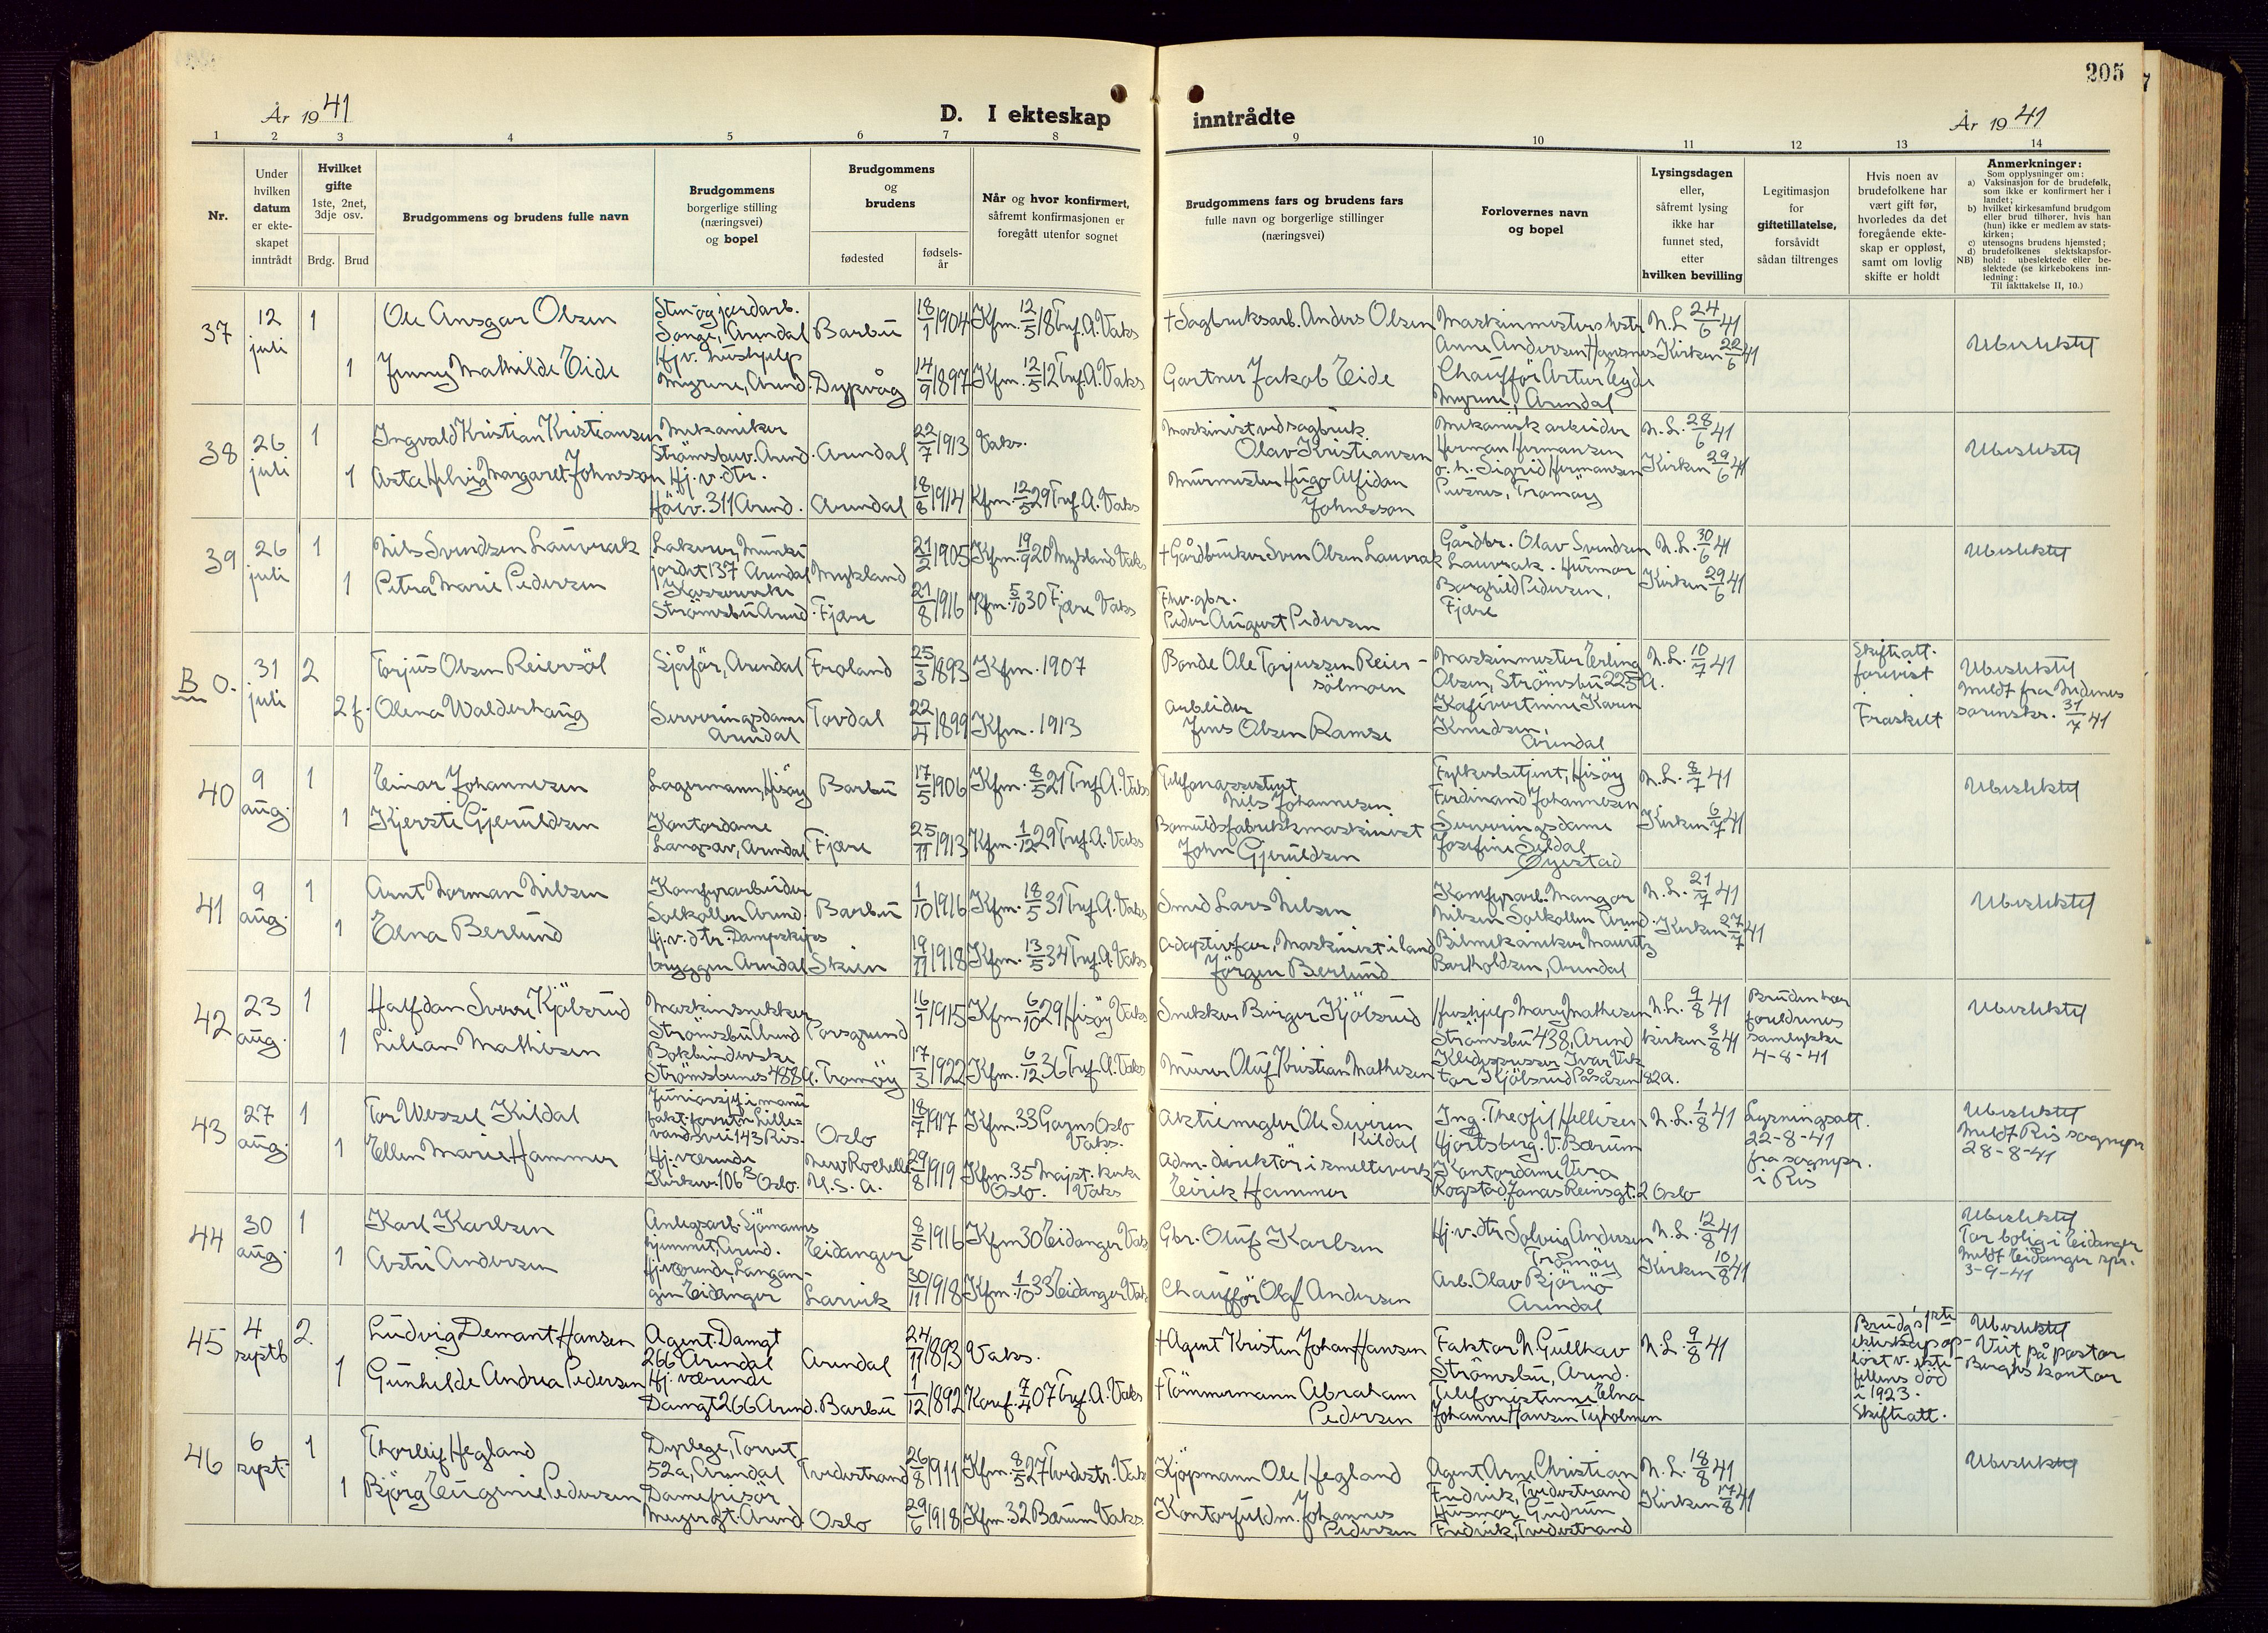 205
År 1941
D. I ekteskap
inntrådte
År 1941
1 2 3 4 5 6 7 8 9 10 11 12 13 14
Nr.
Under hvilken datum er ekte-skapet inntrådt
Hvilket gifte 1ste, 2net, 3dje osv.
Brdg. Brud
Brudgommens og brudens fulle navn
Brudgommens borgerlige stilling (næringsvei) og bopel
Brudgommens og brudens
fødested
fødsels-år
Når og hvor konfirmert, såfremt konfirmasjonen er foregått utenfor sognet
Brudgommens fars og brudens fars fulle navn og borgerlige stillinger (næringsvei)
Forlovernes navn og bopel
Lysingsdagen eller, såfremt lysing ikke har funnet sted, etter hvilken bevilling
Legitimasjon for giftetillatelse, forsåvidt sådan tiltrenges
Hvis noen av brudefolkene har vært gift før, hvorledes da det foregående ekte-skap er oppløst, samt om lovlig skifte er holdt
Anmerkninger:
Som opplysninger om:
a) Vaksinasjon for de brudefolk, som ikke er konfirmert her i landet;
b) hvilket kirkesamfund brudgom eller brud tilhører, hvis han (hun) ikke er medlem av stats-kirken;
c) utensogns brudens hjemsted;
d) brudefolkenes slektskapsfor-hold: ubeslektede eller be-slektede (se kirkebokens inn-ledning:
NB)
Til iakttakelse II, 10.)
37 12 juli 1 Ole Ansgar Olsen
Sten og jordarb. Songe, Arendal Barbu 18/1 1904 Kfm. 12/5 18 Tref. A. Vaks
† Sagbruksarb. Anders Olsen
N.L. 24/6 41
Ubeslektet
1 Jenny Mathilde Eide
Hj.v. hushjelp Myrene, Arend. Dypvåg 14/9 1897 Kfm. 12/5 12 Tref. A. Vaks
Gartner Jakob Eide
Chauffør Artur Eyde Myrene, Arendal
Kirken 22/6 41
38 26 juli 1 Ingvald Kristian Kristiansen
Mekaniker Strømsbuv. Arend. Arendal 22/7 1913 Vaks.
Maskinist ved sagbruk. Olav Kristiansen
Mekanisk arbeider Herman Hermansen
N.L. 28/6 41
Ubeslektet
1 Asta Helvig Margaret Johnsson
Hj.v.dtr. 311 Arend. Arendal 18/8 1914 Kfm. 12/5 29 Tref. A. Vaks
Murmester Hugo Alfidan Johnsson
o.h. Sigrid Hermansen Pusnes, Tromøy
Kirken 29/6 41
39 26 juli 1 Nils Svendsen Lauvrak
Lakerer, Munke jordet 137 Arendal Mykland 21/2 1905 Kfm. 19/9 20 Mykland Vaks
† Gårdbruker Sven Olsen Lauvrak
Gårdbr. Olav Svendsen Lauvrak. Husmor
N.L. 30/6 41
Ubeslektet
1 Petra Marie Pedersen
Kassererske Strømsbu Arend. Fjære 21/8 1916 Kfm. 5/10 30 Fjære Vaks
Fhv. gbr. Peder August Pedersen
Borghild Pedersen, Fjære
Kirken 29/6 41
B O. 31 juli 2 Torjus Olsen Reiersøl
Sjåfør, Arendal Froland 25/3 1893 Kfm. 1907
Bonde Ole Torjussen Reier-sølmoen
Maskinmester Erling Olsen, Strømsbu 225 A.
N.L. 10/7 41
Skifteatt. forevist
Ubeslektet
Meldt fra Nedenes sorenskr. 31/7 41
2 f. Olena Walderhaug
Serveringsdame Arendal Tovdal 22/4 1899 Kfm. 1913
Arbeider Jens Olsen Ramse
Kafévertinne Karen Knudsen, Arendal
Fraskilt
40 9 aug. 1 Einar Johannesen
Lagermann, Hisøy Barbu 17/5 1906 Kfm. 8/5 21 Tref. A. Vaks
Telefonassistent Nils Johannesen
Fylkesbetjent, Hisøy Ferdinand Johannesen
N.L. 8/7 41
Ubeslektet
1 Kjersti Gjeruldsen
Kontordame Langsæv, Arendal Fjære 25/11 1913 Kfm. 1/12 29 Tref. A. Vaks
Bomuldsfabrikkmaskinist John Gjeruldsen
Serveringsdame Josefine Seldal Øyestad
Kirken 6/7 41
41 9 aug. 1 Arnt Norman Nilsen
Komfyrarbeider Solkollen Arend. Barbu 1/10 1916 Kfm. 18/5 31 Tref. A. Vaks
Smed Lars Nilsen
Komfyrarb. Mangor Nilsen Solkollen Arend.
N.L. 21/7 41
Ubeslektet
1 Elna Berlund
Hj.v.dtr. Dampskips bryggen Arendal Skien 19/11 1918 Kfm. 13/5 34 Tref. A. Vaks
Adoptivfar, Maskinist i land Jørgen Berlund
Bilmekaniker Mauritz Bartholdsen, Arendal
Kirken 27/7 41
42 23 aug. 1 Halfdan Sverre Kjølsrud
Maskinsnekker Strømsbu Arend Porsgrund 16/1 1915 Kfm. 6/10 29 Hisøy Vaks
Snekker Birger Kjølsrud
Hushjelp Mary Mathesen Strømsbu 438, Arend
N.L. 9/8 41
Bruden har foreldrenes samtykke 4-8-41
Ubeslektet
1 Lilian Mathesen
Bokbinderske Strømsbunes 488 A. Tromøy 17/3 1922 Kfm. 6/12 36 Tref. A. Vaks
Murer Oluf Kristian Mathesen
Klespresser Ivar Vik tor Kjølsrud Påsåsen 182a.
Kirken 3/8 41
43 27 aug. 1 Tor Wessel Kildal
Oslo 18/7 1917 Kfm. 33 Garns Oslo Vaks.
Aktiemegler Ole Severin Kildal
Ing. Theofil Hellisen Hjortsberg. V. Bærum
N.L. 1/8 41
Lysningsatt. 22-8-41 fra sognepr. i Ris
Ubeslektet
Meldt Ris sognepr 28-8-41
1 Ellen Marie Hammer
Hj. værende Kirkev. 106 B Oslo. New Rochelle U.S.A. 29/8 1919 Kfm. 35 Majst. kirke Oslo. Vaks
Adm. direktør i smelteverk Eirik Hammer
Kontordame Vera Rogstad Jonas Reinsgt. 2 Oslo
44 30 aug. 1 Karl Karlsen
Anlegsarb. Sjømanns hjemmet, Arend. Eidanger 8/5 1916 Kfm 30 Eidanger Vaks
Gbr. Oluf Karlsen
Hj.v.dtr Solveig Andersen Tromøy
N.L. 12/8 41
Ubeslektet
Tar bolig i Eidanger
Meldt Eidanger spr. 3-9-41
1 Astri Andersen
Hj.værende, Langan-gen Eidanger Larvik 30/11 1918 Kfm. 1/10 33 Eidanger Vaks
Chauffør Olaf Andersen
Arb. Olav Bjørnø Arendal
Kirken 10/8 41
45 4 septb 2. Ludvig Demant Hansen
Agent. Damgt 266 Arendal Arendal 24/11 1893 Vaks.
† Agent Kristen Johan Hansen
Faktor N. Gullhav Strømsbu, Arend.
N.L. 9/8 41
Brudg's 1ste ekteskap op-løst v. ekte-fellens død i 1923. Skifteatt.
Ubeslektet
Viet på pastor Berghs kontor
1 Gunhilde Andrea Pedersen
Hj. værende Damgt 266 Arend. Barbu 1/12 1892 Konf. 7/4 07 Tref. A. Vaks
† Tømmermann Abraham Pedersen
Telefonistinne Elna Johanne Hansen Tyholmen
46 6 sept. 1 Thorleif Hegland
Dyrlege, Torvet 52a, Arendal Tvedestrand 26/8 1911 Kfm. 8/5 27 Tvedestr. Vaks
Kjøpmann Ole Hegland
Agent. Arne Christian Fredvik, Tvedestrand
N.L. 18/8 41
Ubeslektet
1 Bjørg Eugenie Pedersen
Damefrisør Meyer gt. Arend. Oslo 29/6 1918 Kfm. 32 Bærum Vaks.
Kontorfuldm. Johannes Pedersen
Husmor Gudrun Fredvik, Tvedestrand
Kirken 17/8 41